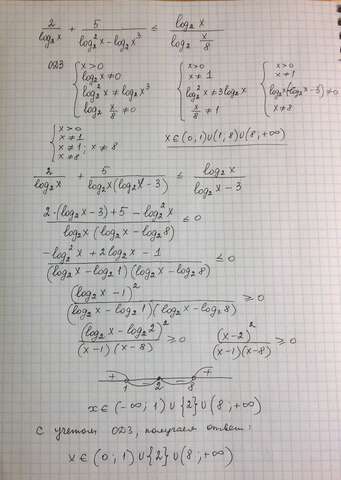 2/log₂x + 5/(log₂²x − log₂x³) ≤ log₂x/log₂(x/8)
ОДЗ { x>0 { x>0 { x>0
log₂x ≠ 0 x ≠ 1 x ≠ 1
log₂²x ≠ log₂x³ log₂²x ≠ 3log₂x log₂x(log₂x − 3) ≠ 0
log₂ x/8 ≠ 0 x/8 ≠ 1 x ≠ 8
{ x>0
x ≠ 1 x ∈ (0; 1) ∪ (1; 8) ∪ (8; +∞)
x ≠ 1; x ≠ 8
x ≠ 8
2/log₂x + 5/(log₂x(log₂x − 3)) ≤ log₂x/(log₂x − 3)
(2·(log₂x − 3) + 5 − log₂²x)/(log₂x(log₂x − log₂8)) ≤ 0
(−log₂²x + 2log₂x − 1)/((log₂x − log₂1)(log₂x − log₂8)) ≤ 0
(log₂x − 1)²/((log₂x − log₂1)(log₂x − log₂8)) ≥ 0
(log₂x − log₂2)²/((x−1)(x−8)) ≥ 0 (x−2)²/((x−1)(x−8)) ≥ 0
+ − − +
1 2 8
x ∈ (−∞; 1) ∪ {2} ∪ (8; +∞)
С учетом ОДЗ, получаем ответ:
x ∈ (0; 1) ∪ {2} ∪ (8; +∞)